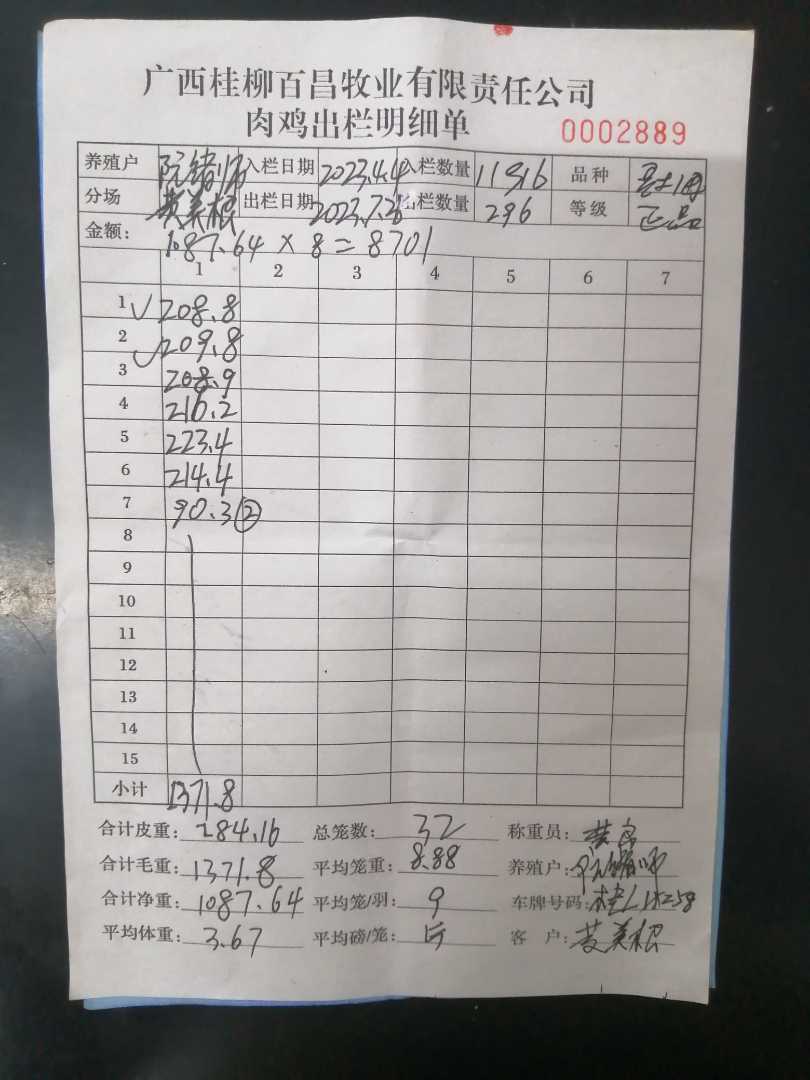 广西桂柳百昌牧业有限责任公司
肉鸡出栏明细单 0002889
养殖户 阮绪师 入栏日期 2023.4.4 入栏数量 11916 品种
分场 黄美根 出栏日期 2023.7.28 出栏数量 296 等级 正品
金额: 1087.64 × 8 = 8701
1 2 3 4 5 6 7
1 ✓ 208.8
2 ✓ 209.8
3 208.9
4 216.2
5 223.4
6 214.4
7 90.3 ②
8
9
10
11
12
13
14
15
小计 1371.8
合计皮重: 284.16 总笼数: 32 称重员:
合计毛重: 1371.8 平均笼重: 8.88 养殖户: 阮绪师
合计净重: 1087.64 平均笼/羽: 9 车牌号码:
平均体重: 3.67 平均磅/笼: 5 客 户: 黄美根